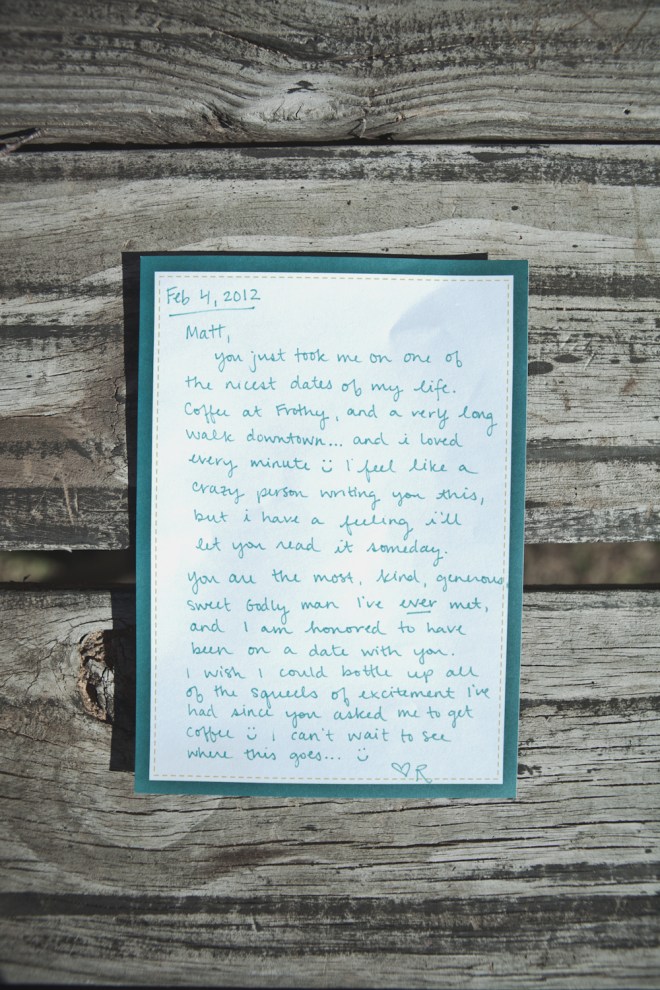 Feb 4, 2012
Matt,
you just took me on one of
the nicest dates of my life.
Coffee at Frothy, and a very long
walk downtown... and i loved
every minute ü I feel like a
crazy person writing you this,
but i have a feeling i'll
let you read it someday.
you are the most, kind, generous,
sweet Godly man I've ever met,
and I am honored to have
been on a date with you.
I wish I could bottle up all
of the squeels of excitement I've
had since you asked me to get
coffee ü i can't wait to see
where this goes... ü
♡ R